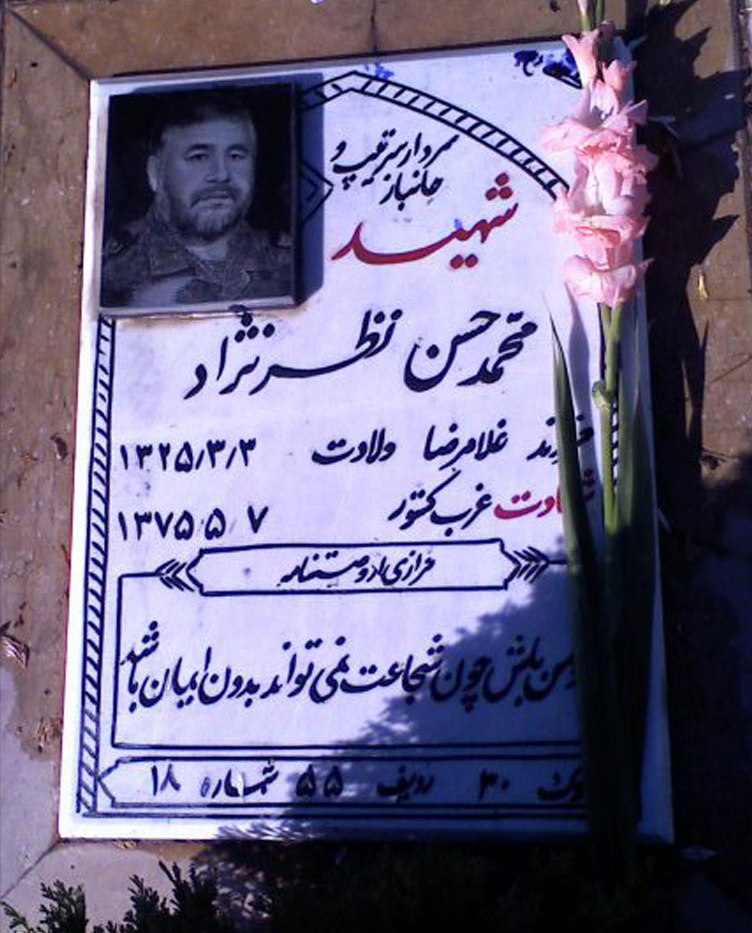 سردار سرتیپ و
جانباز
شهید
محمد حسن نظرنژاد
فرزند غلامرضا ولادت ۱۳۲۵/۳/۳
شهادت غرب کشور ۱۳۷۵ ۵ ۷
فرازی از وصیتنامه
مومن باش چون شجاعت نمی تواند بدون ایمان باشد
بلوک ۳۰ ردیف ۵۵ شماره ۱۸